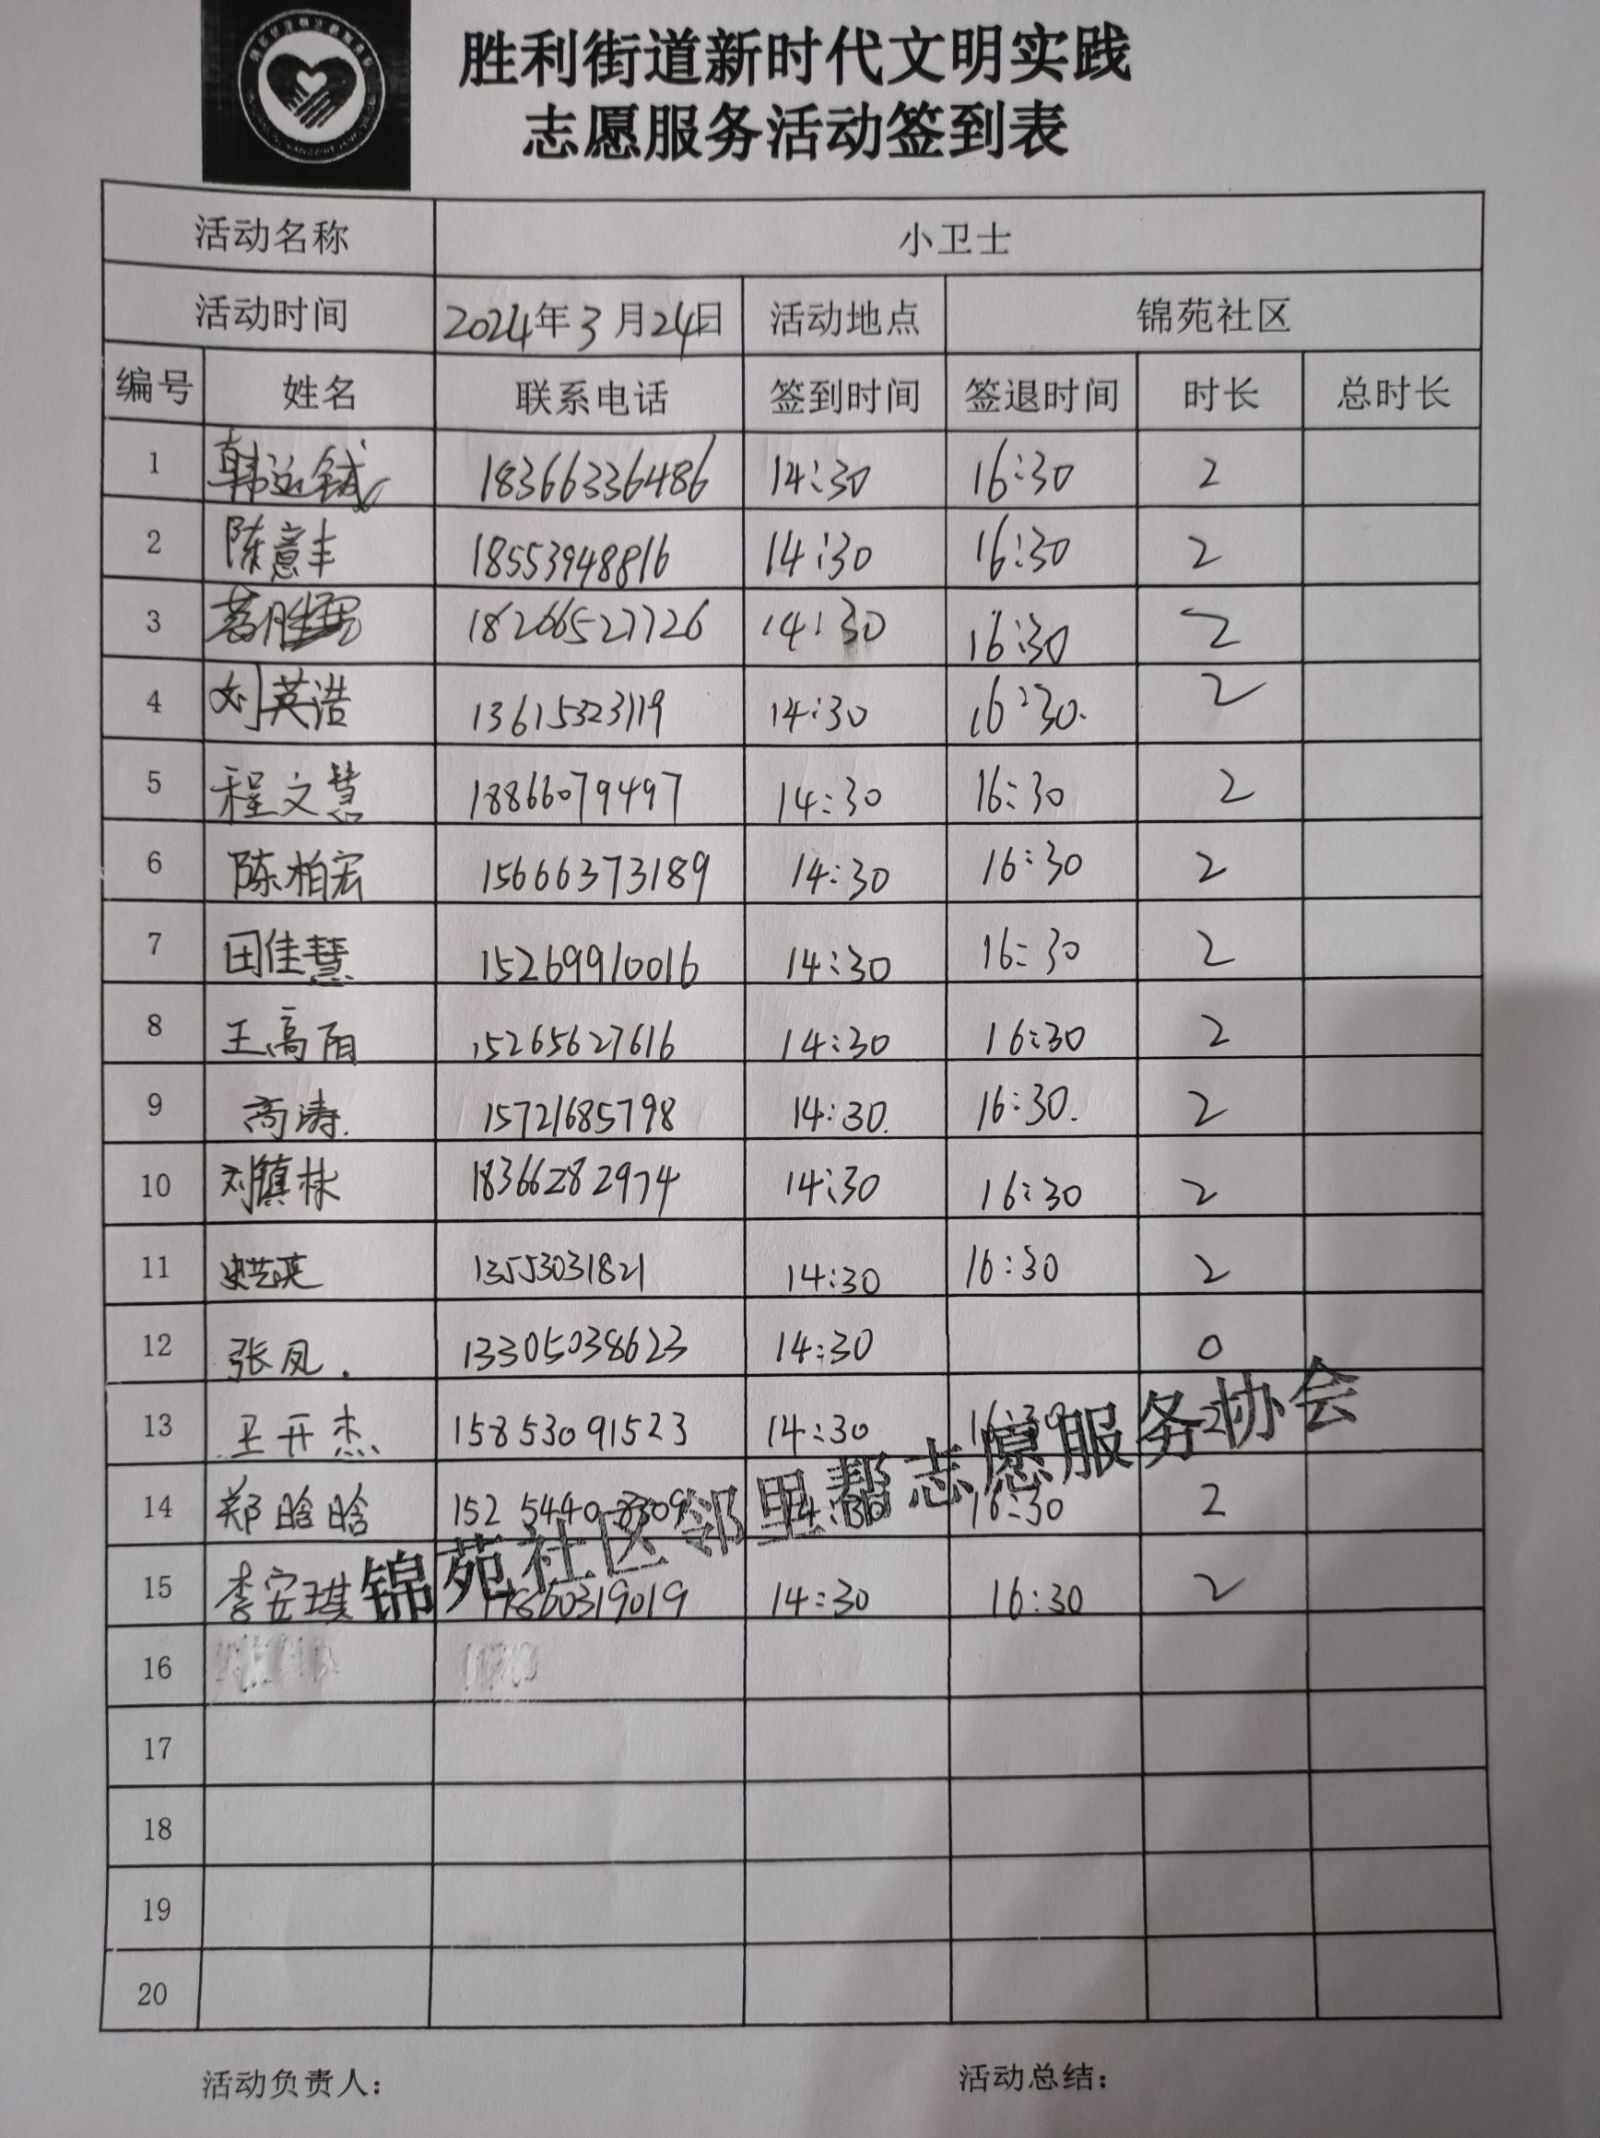 胜利街道新时代文明实践
志愿服务活动签到表
活动名称 小卫士
活动时间 2024年3月24日 活动地点 锦苑社区
编号 姓名 联系电话 签到时间 签退时间 时长 总时长
1 18366336486 14:30 16:30 2
2 陈意丰 18553948816 14:30 16:30 2
3 18266527726 14:30 16:30 2
4 刘英浩 13615323119 14:30 16:30. 2
5 程文慧 18866079497 14:30 16:30 2
6 陈柏宏 15666373189 14:30 16:30 2
7 田佳慧 15269910016 14:30 16:30 2
8 王高阳 15265627616 14:30 16:30 2
9 高涛. 15721685798 14:30. 16:30. 2
10 刘镇林 18366282974 14:30 16:30 2
11 13553031821 14:30 16:30 2
12 张凤. 13305038623 14:30 0
13 王开杰 15853091523 14:30 16:30 2
14 郑晗晗 14:30 16:30 2
15 李安琪 17860319019 14:30 16:30 2
锦苑社区邻里帮志愿服务协会
16
17
18
19
20
活动负责人： 活动总结：